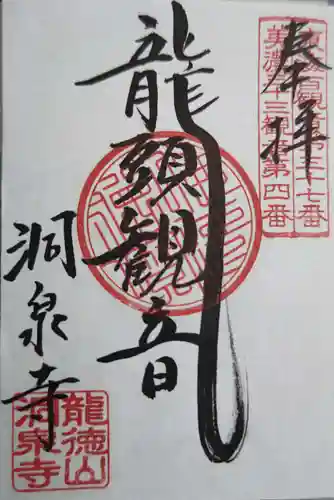 奉拝
美濃三十三観音第四番
龍頭観音
洞泉寺
龍徳山
洞泉寺